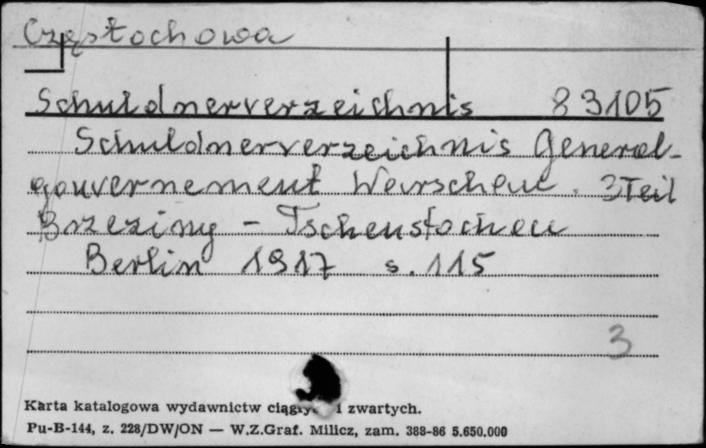 Częstochowa
Schuldnerverzeichnis 83105
Schuldnerverzeichnis General-
gouvernement Warschau. 3Teil
Brzeziny - Tschenstochau
Berlin 1917 s. 115
3
Karta katalogowa wydawnictw i zwartych.
Pu-B-144, z. 228/DW/ON — W.Z.Graf. Milicz, zam. 388-86 5.650.000